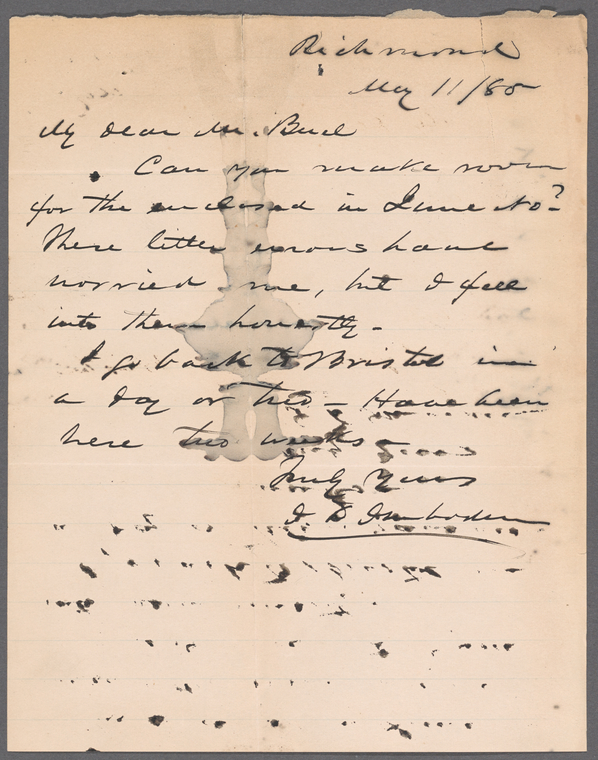 Richmond
May 11/85
My dear Mr. Buel
Can you make room
for the enclosed in June No?
These little errors have
worried me, but I fell
into them honestly -
I go back to Bristol in
a day or two - Have been
here two weeks -
Truly Yours
J D Imboden